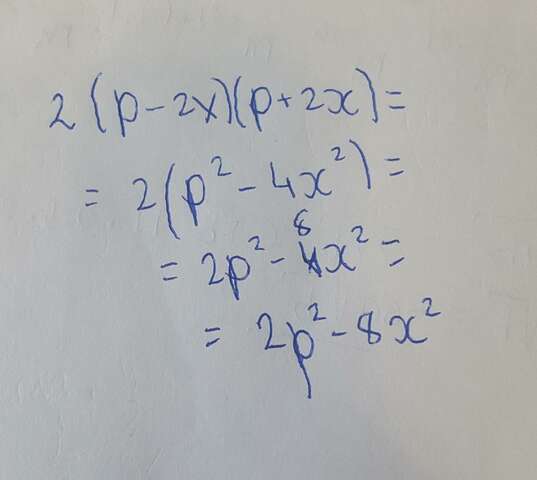 2(p-2x)(p+2x)=
=2(p²-4x²)=
=2p²-8x²=
=2p²-8x²